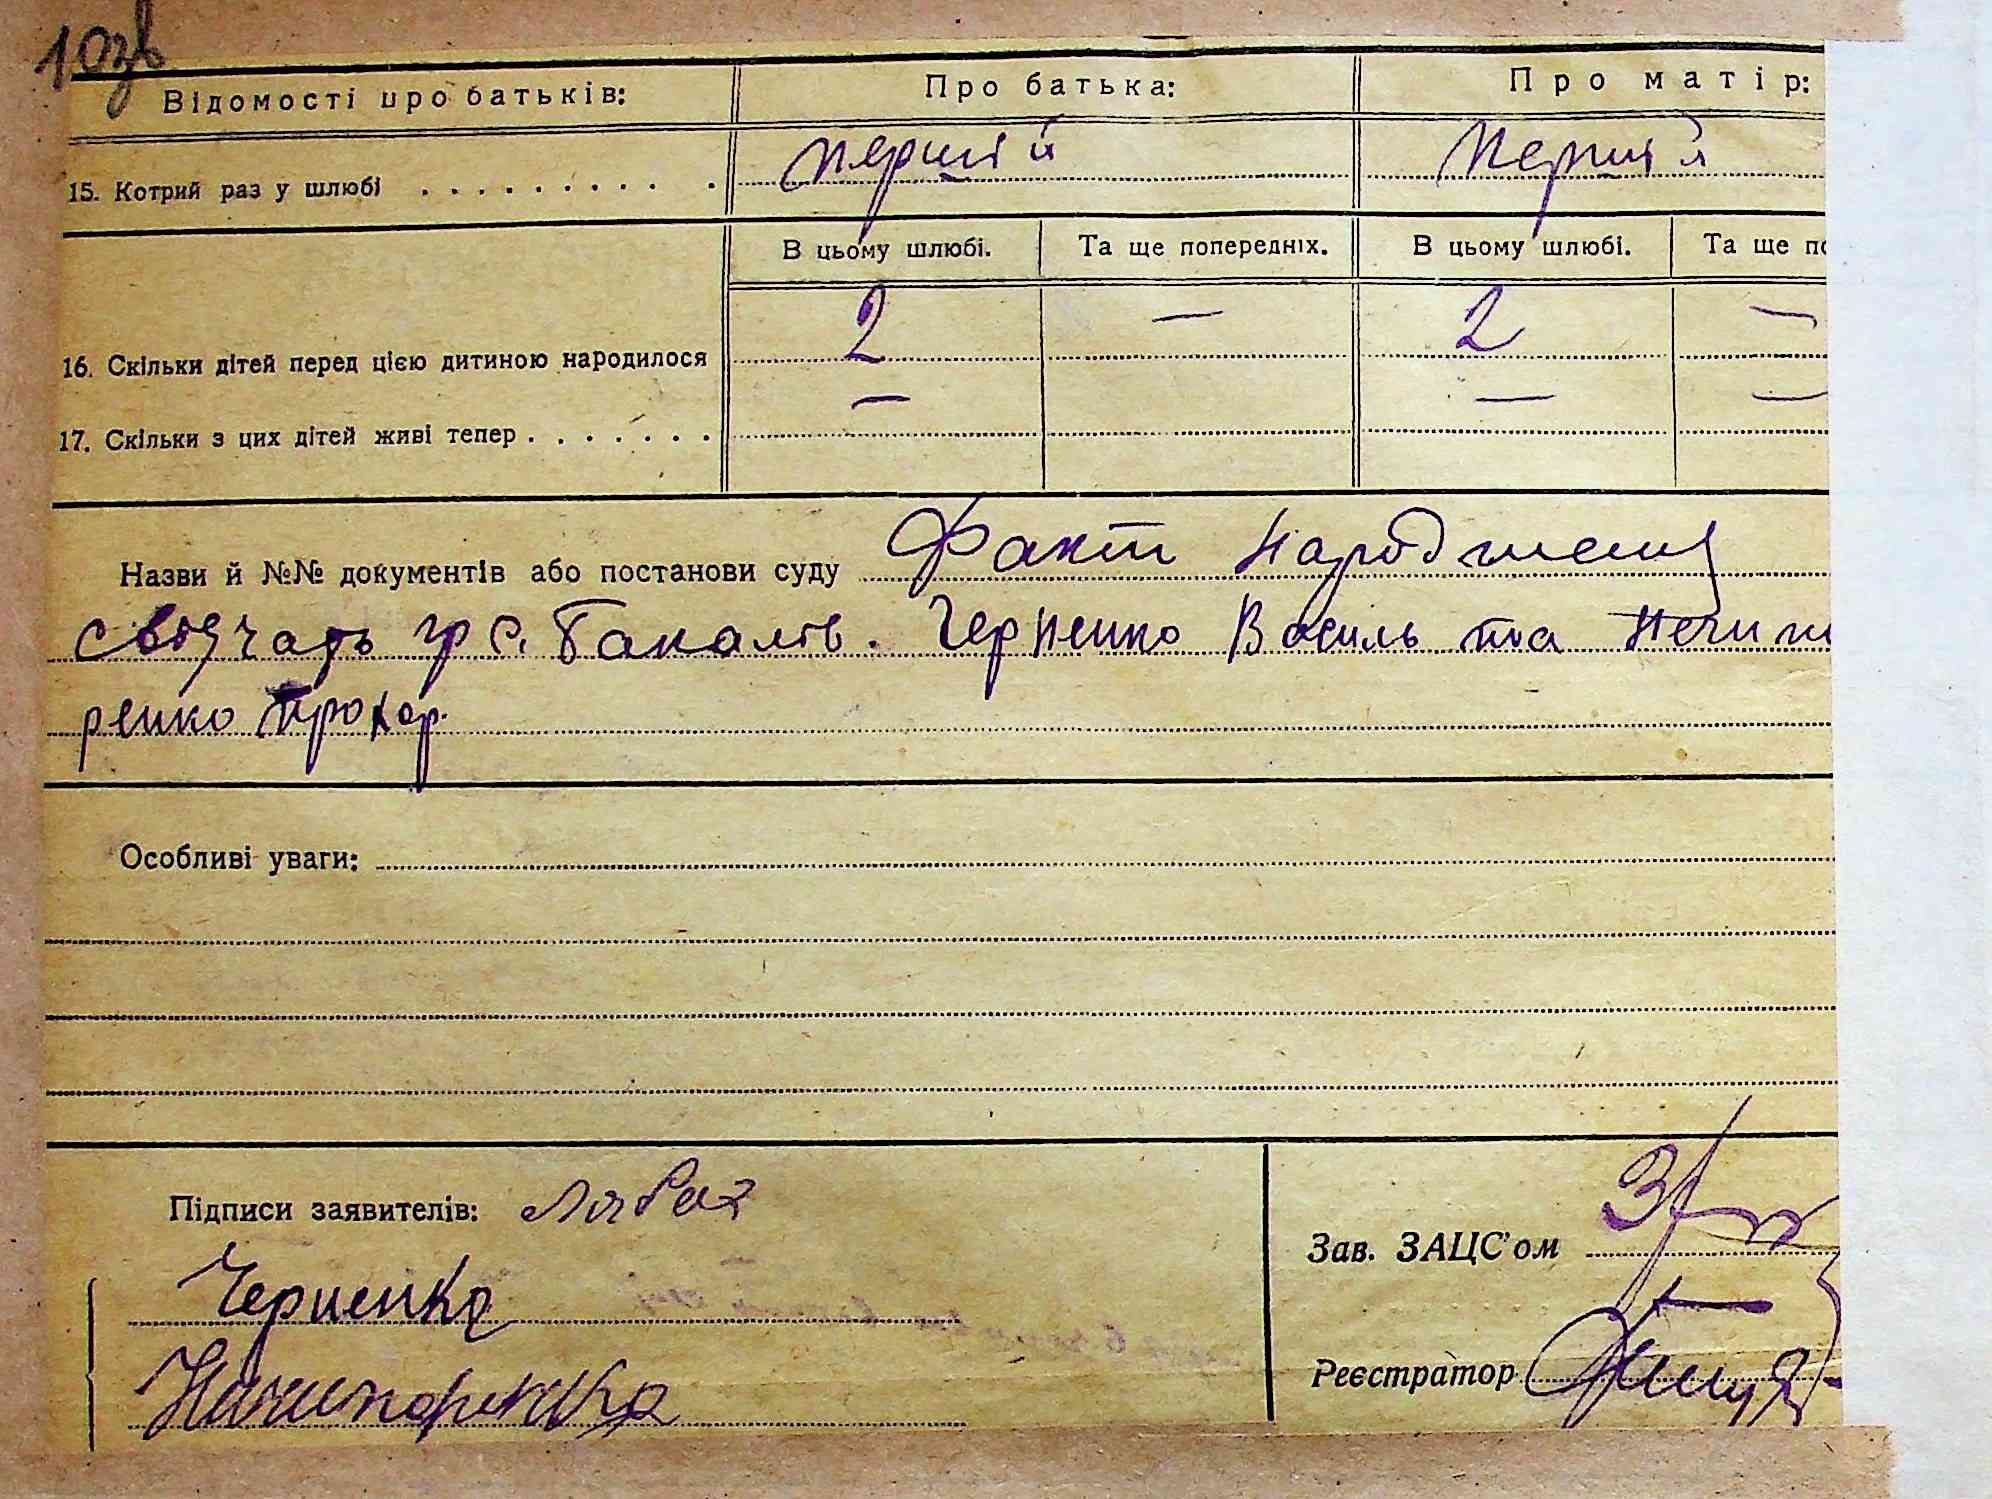 10зв
Відомості про батьків: Про батька: Про матір:
15. Котрий раз у шлюбі . . . . . . . . . . першій першій
В цьому шлюбі. Та ще попередніх. В цьому шлюбі. Та ще по
16. Скільки дітей перед цією дитиною народилося 2 — 2 —
17. Скільки з цих дітей живі тепер . . . . . . . — — —
Назви й №№ документів або постанови суду Факт народження
свідчать гр с. Бакалів. Черненко Василь та Нечипо
ренко Прохор.
Особливі уваги:
Підписи заявителів:
Черненко
Ничипоренко
Зав. ЗАЦС'ом
Реєстратор